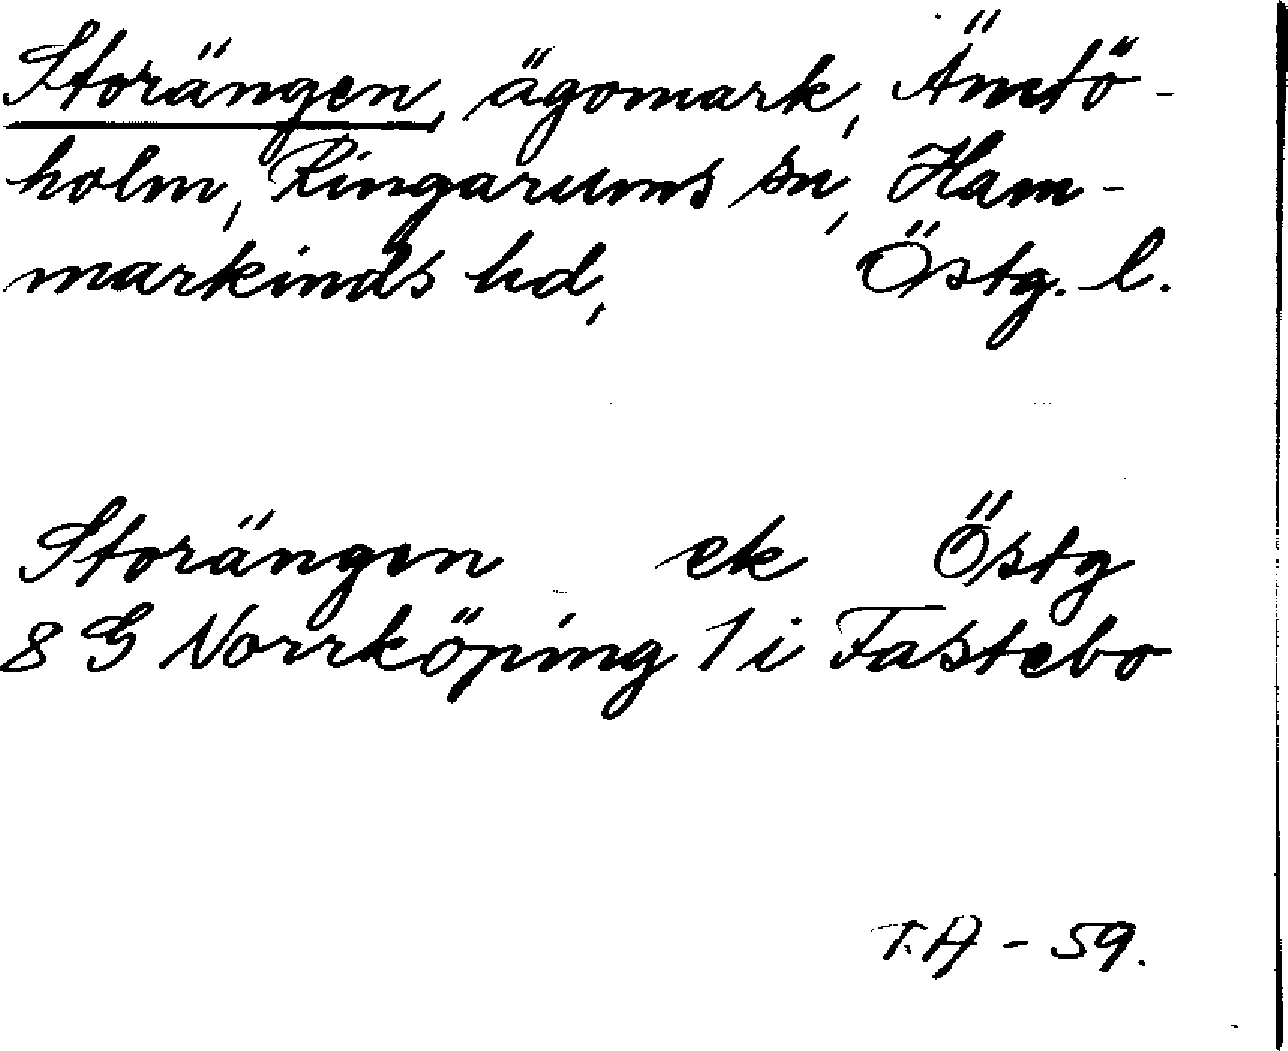 Storängen, ägomark, Ämtö-
holm, Ringarums sn, Ham-
markinds hd, Östg. l.
Storängen ek Östg
8 G Norrköping 1 i Fastebo
T.A - 59.